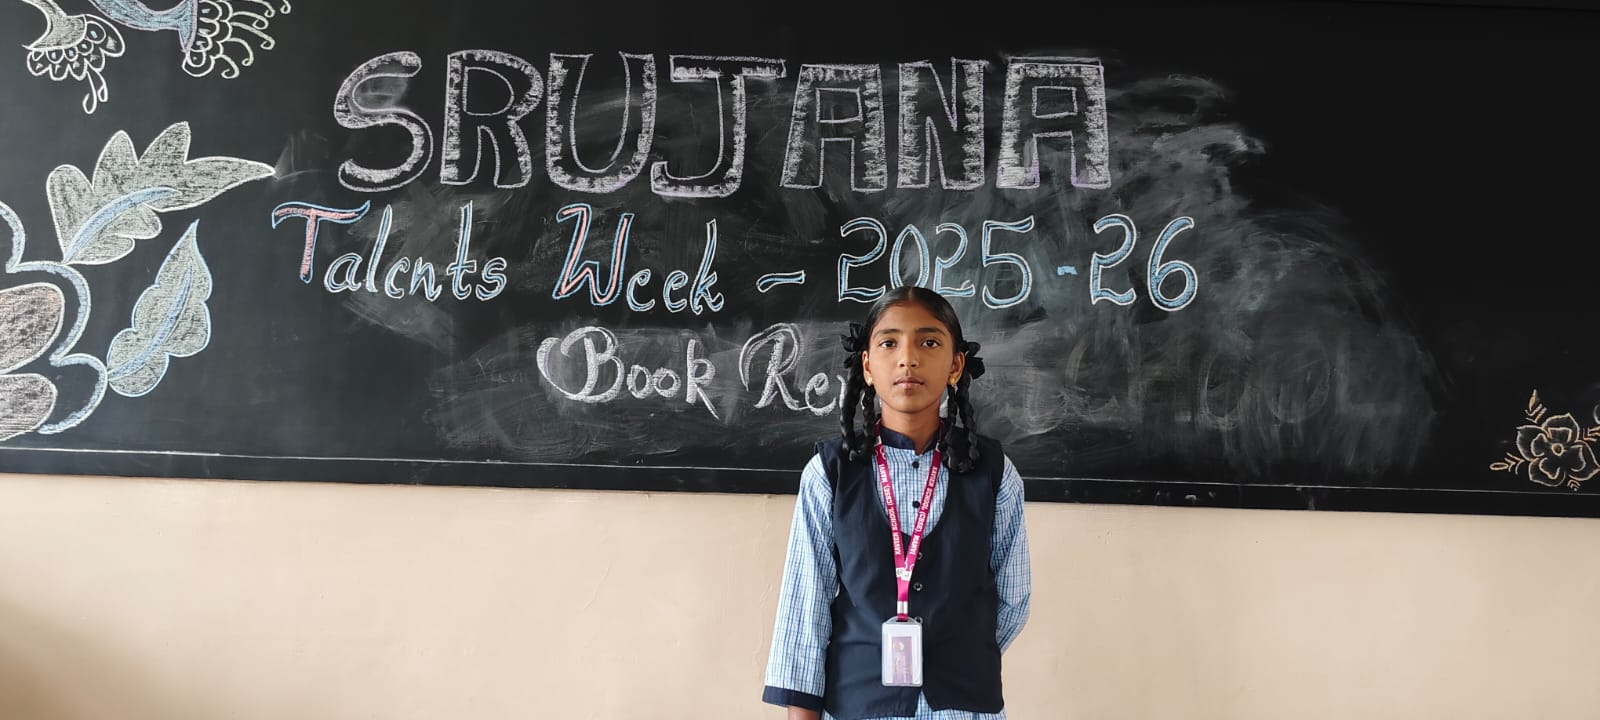 SRUJANA
Talents Week - 2025-26
Book Re
SCHOOL